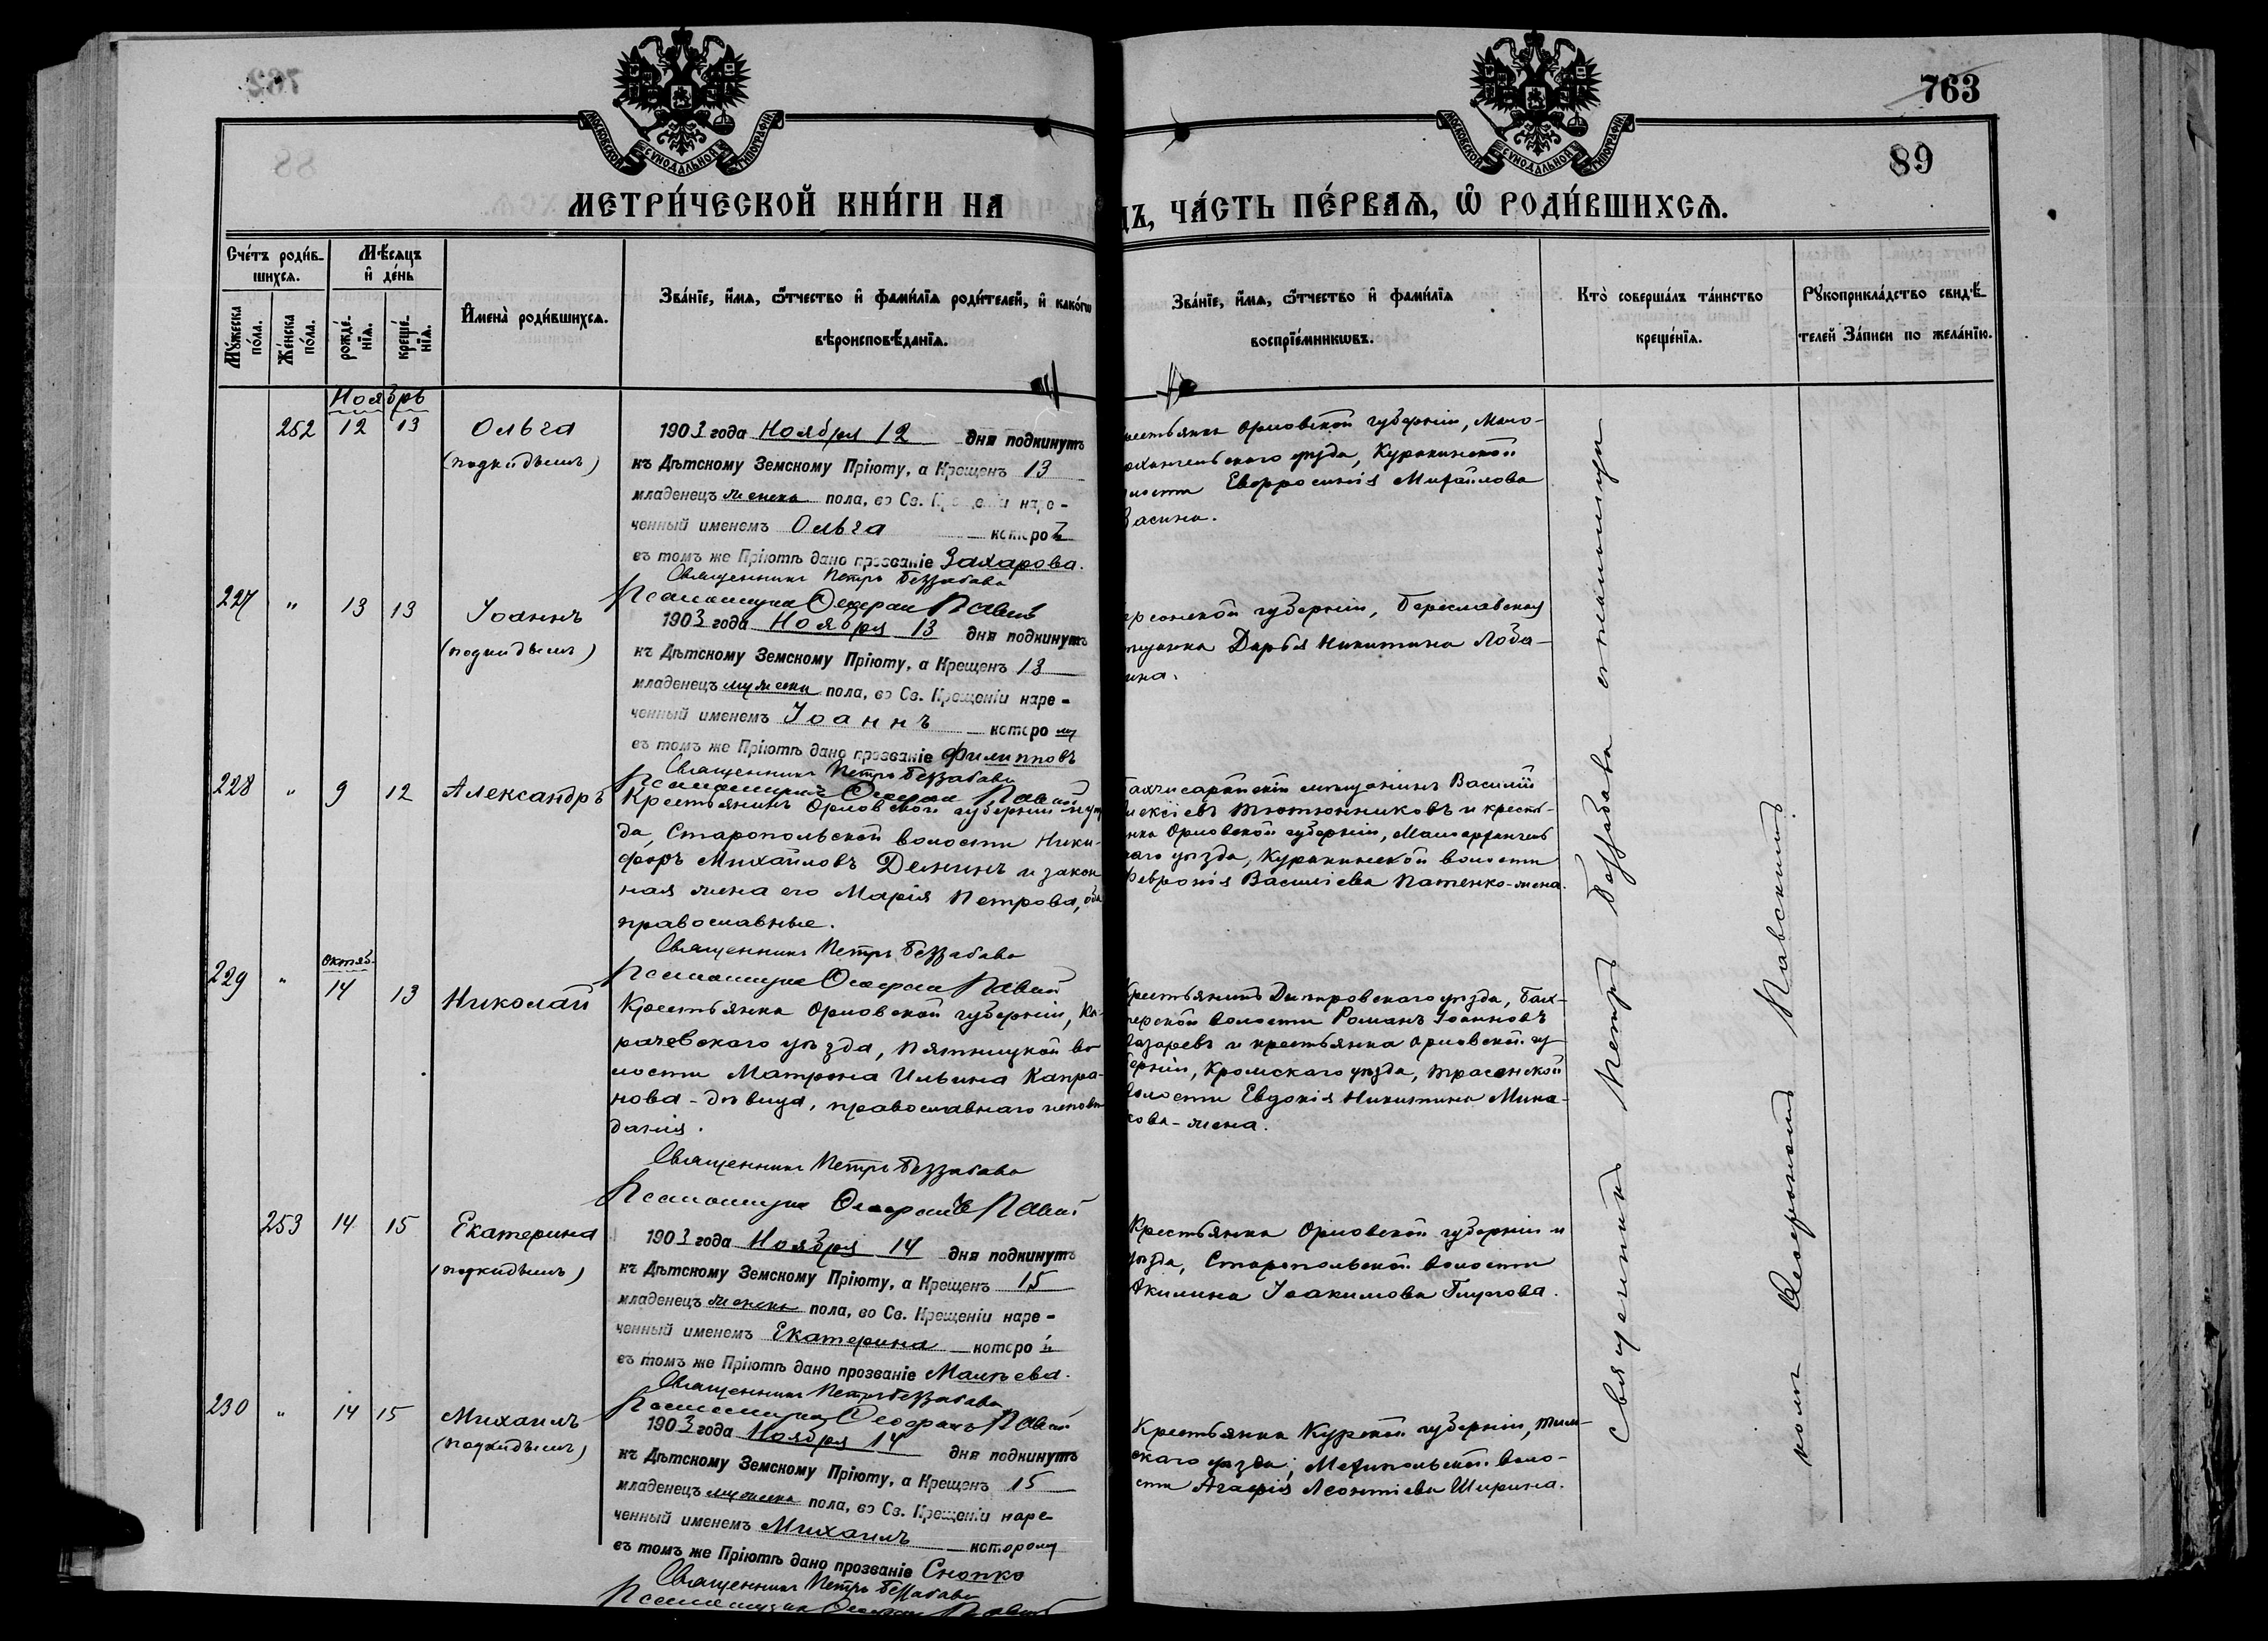 763
89
МОСКОВСКОЙ СѴНОДАЛЬНОЙ ТИПОГРАФІИ
МОСКОВСКОЙ СѴНОДАЛЬНОЙ ТИПОГРАФІИ
МЕТРИ́ЧЕСКОЙ КНИ́ГИ НА
ДЪ, ЧА́СТЬ ПЕ́РВАѦ, Ѡ҆ РОДИ́ВШИХСѦ.
Сче́тъ роди́в-
шихсѧ.
Мѣ́сѧцъ
и҆ де́нь
Мꙋ́жеска по́ла.
Же́нска по́ла.
рожде́нїѧ.
креще́нїѧ.
И҆мена̀ роди́вшихсѧ.
Зва́нїе, и҆́мѧ, ѻ҆́тчество и҆ фамѝлїѧ роди́телей, и҆ како́гѡ
вѣроисповѣ́данїѧ.
Зва́нїе, и҆́мѧ, ѻ҆́тчество и҆ фами́лїѧ
воспрїе́мникѡвъ.
Кто̀ соверша́лъ та́инство
креще́нїѧ.
Рꙋкоприкла́дство свидѣ́-
телей За́писи по жела́нїю.
Ноябрь
252 12 13 Ольга
(подкидышъ)
1903 года Ноября 12 дня подкинутъ
къ Дѣтскому Земскому Пріюту, а Крещенъ 13
младенецъ женска пола, во Св. Крещеніи наре-
ченный именемъ Ольга которой
въ томъ же Пріютѣ дано прозваніе Захарова.
Священникъ Петръ Беззабава
Псаломщикъ
рестьянка Орловской губерніи, Мало-
архангельскаго уѣзда, Куракинской
лости Евфросинія Михайлова
227 " 13 13 Іоаннъ
(подкидышъ)
1903 года Ноября 13 дня подкинутъ
къ Дѣтскому Земскому Пріюту, а Крещенъ 13
младенецъ мужеска пола, во Св. Крещеніи наре-
ченный именемъ Іоаннъ которому
въ томъ же Пріютѣ дано прозваніе Филипповъ
Священникъ Петръ Беззабава
Псаломщикъ
ерсонской губерніи, Бериславская
ѣщанка Дарья Никитина Лоба-
ина.
228 " 9 12 Александръ
Крестьянинъ Орловской губерніи и уѣз
да, Старопольской волости Ники-
форъ Михайловъ Деминъ и закон
ная жена его Марія Петрова, оба
православные.
Священникъ Петръ Беззабава
Псаломщикъ
Бахчисарайскій мѣщанинъ Василій
лексіевъ Тютюнниковъ и кресть-
нка Орловской губерніи, Малоархангель
каго уѣзда, Куракинской волости
Февронія Василіева Патенко-жена.
229 " октяб. 14 13 Николай
Крестьянка Орловской губерніи, Ка-
рачевскаго уѣзда, Пятницкой во
лости Матрона Ильина Капра-
нова-дѣвица, православнаго исповѣ
данія.
Священникъ Петръ Беззабава
Псаломщикъ
Крестьянинъ Днѣпровскаго уѣзда,
черской волости Романъ Іоанновъ
Лазаревъ и крестьянка Орловской гу
берніи, Кромскаго уѣзда,
волости Евдокія Никитина Мина-
кова-жена.
253 14 15 Екатерина
(подкидышъ)
1903 года Ноября 14 дня подкинутъ
къ Дѣтскому Земскому Пріюту, а Крещенъ 15
младенецъ женска пола, во Св. Крещеніи наре-
ченный именемъ Екатерина которой
въ томъ же Пріютѣ дано прозваніе Матѣева.
Священникъ Петръ Беззабава
Псаломщикъ
Крестьянка Орловской губерніи и
уѣзда, Старопольской волости
Акилина Іоакимова
230 " 14 15 Михаилъ
(подкидышъ)
1903 года Ноября 14 дня подкинутъ
къ Дѣтскому Земскому Пріюту, а Крещенъ 15
младенецъ мужеска пола, во Св. Крещеніи наре
ченный именемъ Михаилъ которому
въ томъ же Пріютѣ дано прозваніе Снопко
Священникъ Петръ Беззабава
Псаломщикъ
Крестьянка Курской губерніи, Тим-
скаго уѣзда, волос-
сти Агафія Леонтіева Ширина.
Священникъ Петръ Беззабава съ псаломщи
комъ Павскимъ